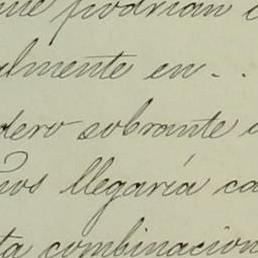 podrían
lmente en..
dero sobrante
ños llegaría ca
ta combinacion